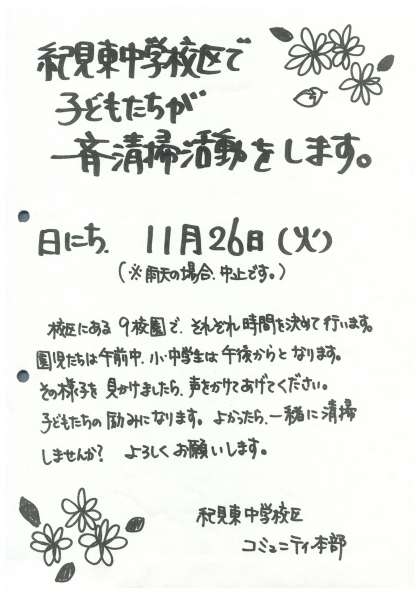 紀見東中学校区で
子どもたちが
一斉清掃活動をします。
日にち. 11月26日(火)
(※雨天の場合、中止です。)
校区にある9校園で、それぞれ時間を決めて行います。
園児たちは午前中、小・中学生は午後からとなります。
その様子を見かけましたら、声をかけてあげてください。
子どもたちの励みになります。よかったら、一緒に清掃
しませんか? よろしくお願いします。
紀見東中学校区
コミュニティ本部